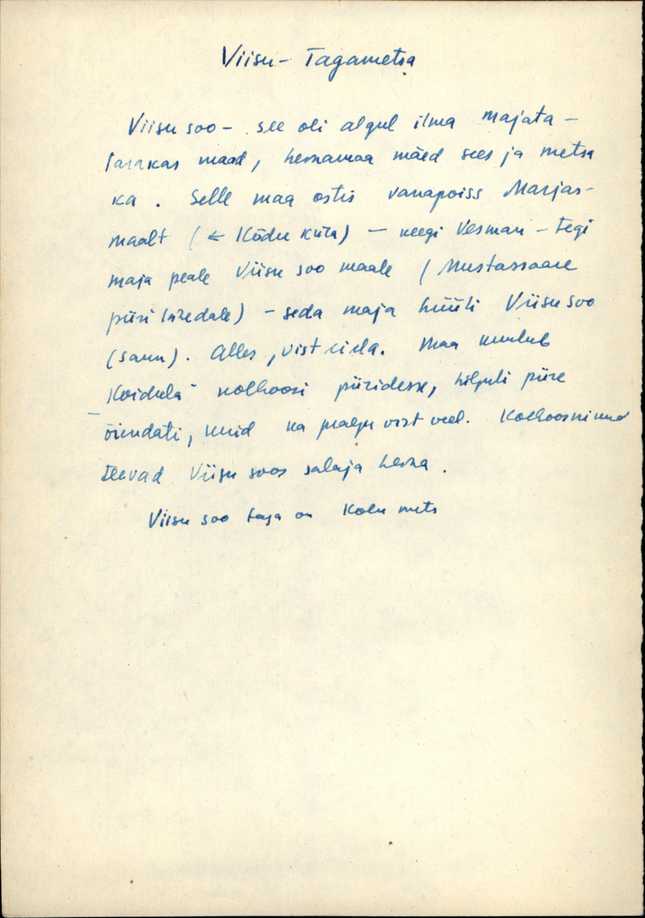 Viisu-Tagametsa
Viisu soo - see oli algul ilma majata -
maad, heinamaa mäed sees ja metsa
ka. Selle maa ostis vanapoiss Marjas-
maalt (← Kõdu küla) - keegi Vesman - tegi
maja peale Viisu soo maale (Mustassaare
piiri lähedale) - seda maja hüüti Viisu soo
(saun). Alles, vist ei ela. Maa kuulub
"Koidula" kolhoosi piiridesse, hiljuti piire
õiendati, kuid ka praegu vist veel. Kolhoosnikud
teevad Viisu soos salaja heina.
Viisu soo taga on Kolu mets